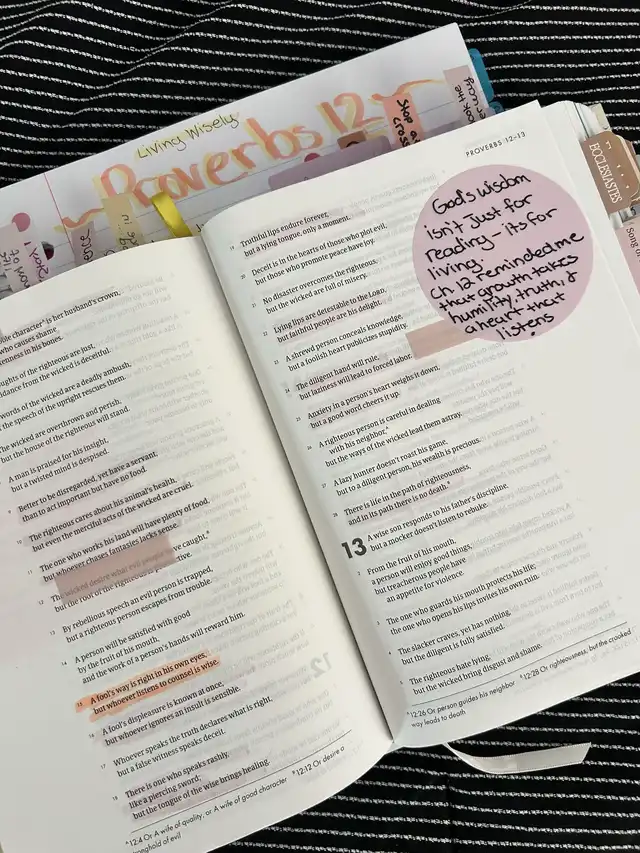 Living Wisely
Proverbs 12
Stop
ECCLESIASTES
Song of
character" is her husband's crown,
who causes shame
rottenness in his bones.
thoughts of the righteous are just,
guidance from the wicked is deceitful.
words of the wicked are a deadly ambush,
the speech of the upright rescues them.
The wicked are overthrown and perish,
but the house of the righteous will stand.
A man is praised for his insight,
but a twisted mind is despised.
9 Better to be disregarded, yet have a servant,
than to act important but have no food.
10 The righteous cares about his animal's health,
but even the merciful acts of the wicked are cruel.
11 The one who works his land will have plenty of food,
but whoever chases fantasies lacks sense.
12 The wicked desire what evil people have caught,*
but the root of the righteous
13 By rebellious speech an evil person is trapped,
but a righteous person escapes from trouble.
14 A person will be satisfied with good
by the fruit of his mouth,
and the work of a person's hands will reward him.
15 A fool's way is right in his own eyes,
but whoever listens to counsel is wise.
16 A fool's displeasure is known at once,
but whoever ignores an insult is sensible.
17 Whoever speaks the truth declares what is right,
but a false witness speaks deceit.
18 There is one who speaks rashly,
like a piercing sword;
but the tongue of the wise brings healing.
12:4 Or A wife of quality, or A wife of good character 12:12 Or desire a
stronghold of evil
PROVERBS 12–13
19 Truthful lips endure forever,
but a lying tongue, only a moment.
20 Deceit is in the hearts of those who plot evil,
but those who promote peace have joy.
21 No disaster overcomes the righteous,
but the wicked are full of misery.
22 Lying lips are detestable to the LORD,
but faithful people are his delight.
23 A shrewd person conceals knowledge,
but a foolish heart publicizes stupidity.
24 The diligent hand will rule,
but laziness will lead to forced labor.
25 Anxiety in a person's heart weighs it down,
but a good word cheers it up.
26 A righteous person is careful in dealing
with his neighbor,*
but the ways of the wicked lead them astray.
27 A lazy hunter doesn't roast his game,
but to a diligent person, his wealth is precious.
28 There is life in the path of righteousness,
and in its path there is no death.*
13 A wise son responds to his father's discipline,
but a mocker doesn't listen to rebuke.
2 From the fruit of his mouth,
a person will enjoy good things,
but treacherous people have
an appetite for violence.
3 The one who guards his mouth protects his life;
the one who opens his lips invites his own ruin.
4 The slacker craves, yet has nothing,
but the diligent is fully satisfied.
5 The righteous hate lying,
but the wicked bring disgust and shame.
12:26 Or person guides his neighbor 12:28 Or righteousness, but the crooked
way leads to death
God's wisdom
isn't Just for
reading – its for
living.
Ch. 12 reminded me
that growth takes
humility, truth, &
a heart that
listens